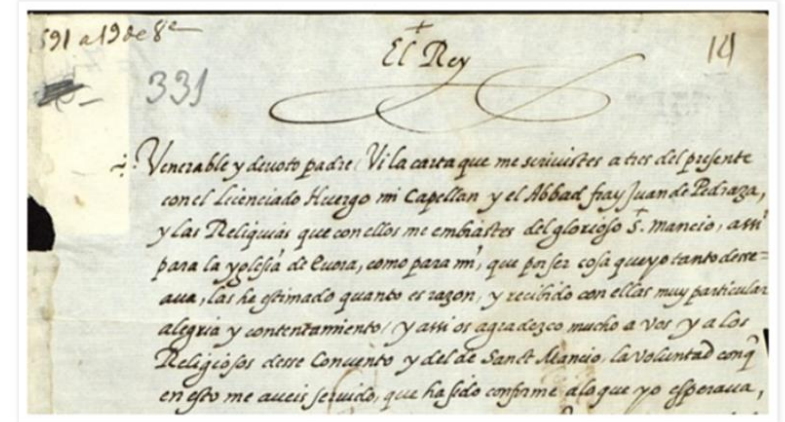 591 a 19 de 8e
El Rey
14
331
Venerable y devoto padre. Vi la carta que me scrivistes a tres del presente
con el Licenciado Huergo mi Capellan y el Abbad fray Juan de Pedraza,
y las Reliquias que con ellos me embiastes del glorioso S. Mancio, assi
para la yglesia de Evora, como para mi, que por ser cosa que yo tanto desse=
aua, las he estimado quanto es razon, y recibido con ellas muy particular
alegria y contentamiento, y assi os agradezco mucho a vos y a los
Religiosos desse Convento y del de Sanct Mancio, la voluntad conq̃
en esto me aveis servido, que ha sido conforme a lo que yo esperaua,